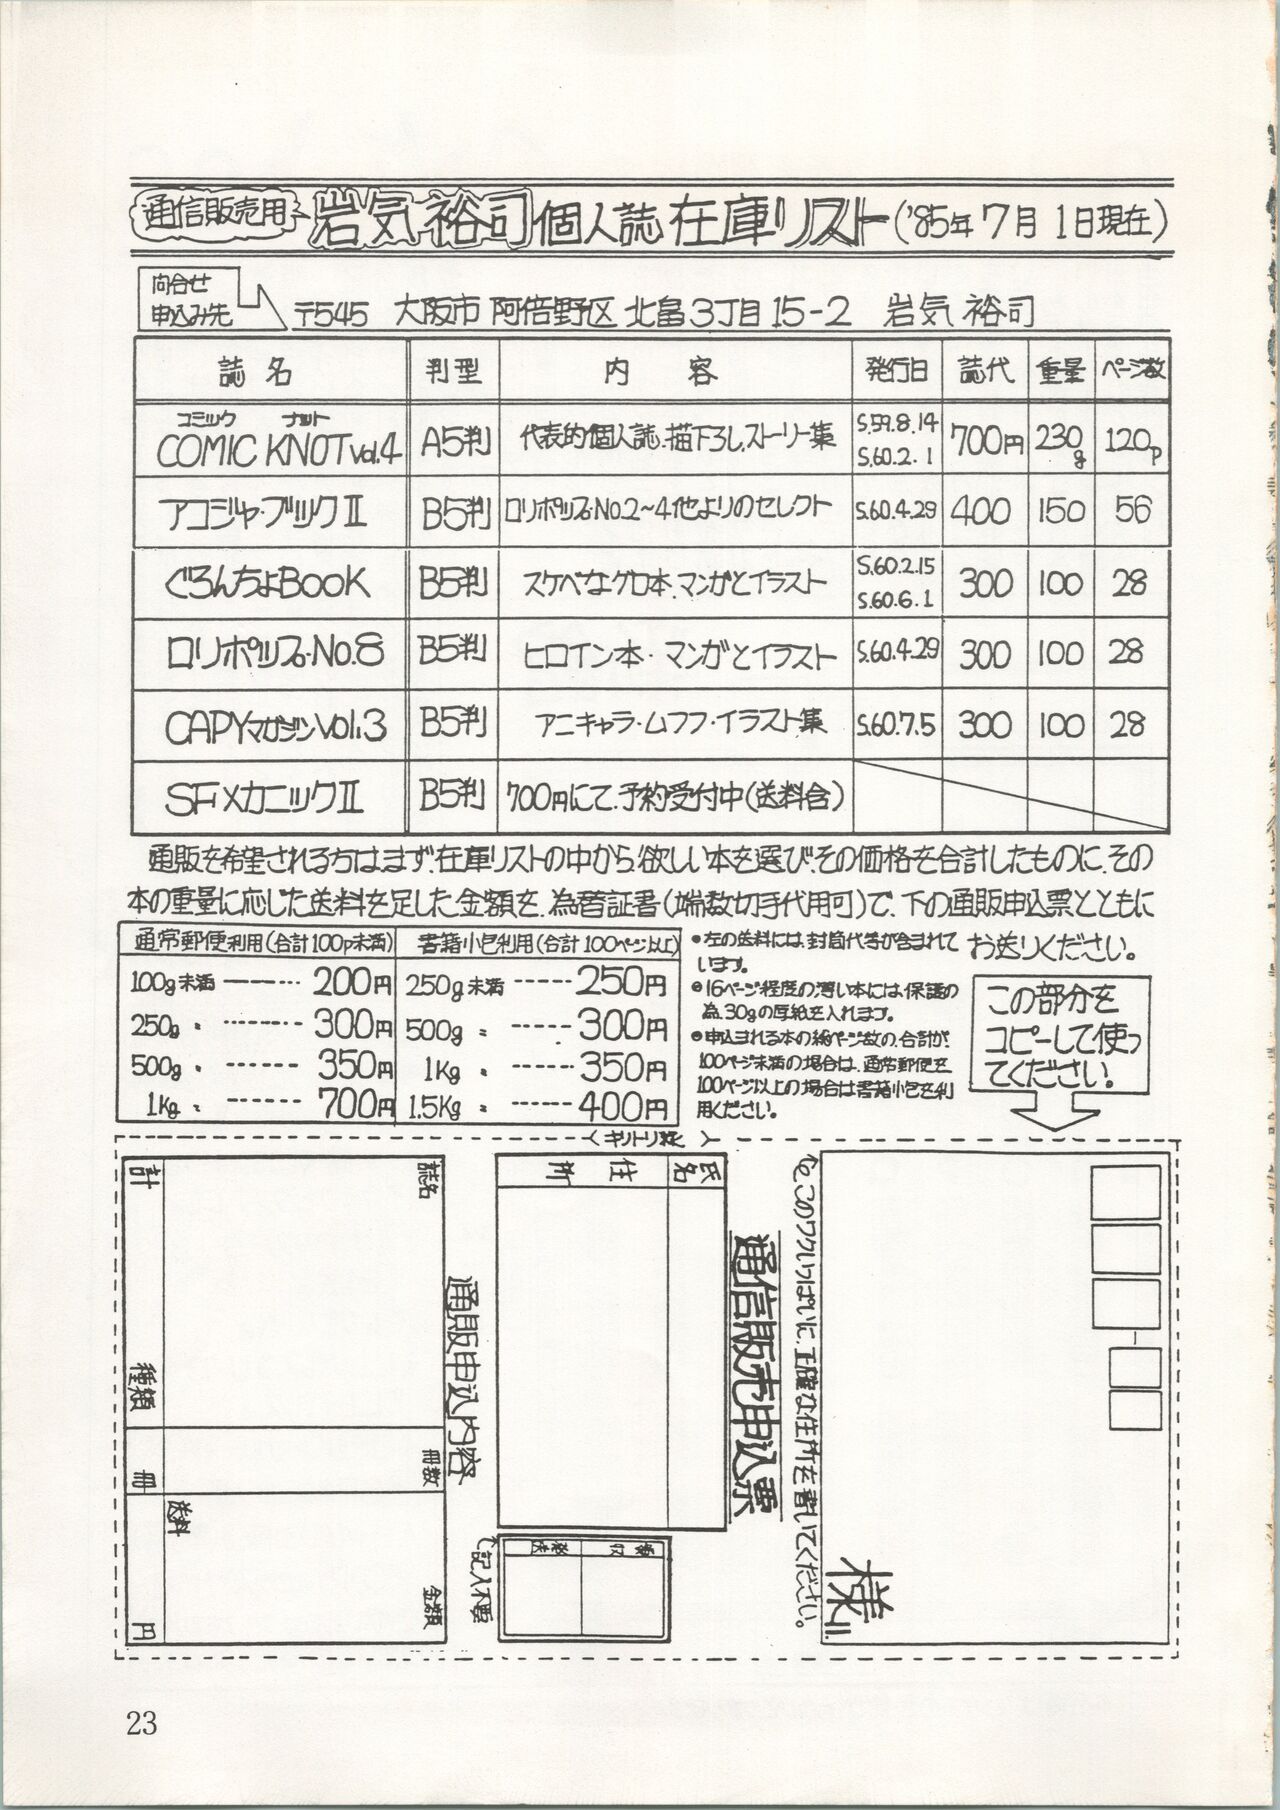 通信販売用 岩気裕司個人誌在庫リスト('85年7月1日現在)
問合せ
申込み先
〒545 大阪市 阿倍野区 北畠3丁目15-2 岩気 裕司
誌名 判型 内容 発行日 誌代 重量 ページ数
コミック ナット
COMIC KNOT Vol.4 A5判 代表的個人誌.描下ろし.ストーリー集 S.59.8.14 S.60.2.1 700円 230g 120p
アコジャ・ブックⅡ B5判 ロリポップ・No.2〜4他よりのセレクト S.60.4.29 400 150 56
ぐろんちょBOOK B5判 スケベなグロ本.マンガとイラスト S.60.2.15 S.60.6.1 300 100 28
ロリポップ・No.8 B5判 ヒロイン本・マンガとイラスト S.60.4.29 300 100 28
CAPYマガジンVol.3 B5判 アニキャラ・ムフフ・イラスト集 S.60.7.5 300 100 28
SFメカニックⅡ B5判 700円にて.予約受付中(送料含)
通販を希望される方は.まず.在庫リストの中から.欲しい本を選び.その価格を合計したものに.その
本の重量に応じた送料を足した金額を.為替証書(端数切手代用可)で.下の通販申込票とともに
お送りください。
通常郵便利用(合計100p未満)
100g未満 200円
250g 〃 300円
500g 〃 350円
1Kg 〃 700円
書籍小包利用(合計100ページ以上)
250g未満 250円
500g 〃 300円
1Kg 〃 350円
1.5Kg 〃 400円
●左の送料には.封筒代等が含まれて
います。
●16ページ程度の薄い本には.保護の
為.30gの厚紙を入れます。
●申込まれる本の総ページ数の.合計が.
100ページ未満の場合は.通常郵便を
100ページ以上の場合は書籍小包を利
用ください。
この部分を
コピーして使っ
てください!
キリトリ線
様
このワクいっぱいに.正確な住所を書いてください。
通信販売申込票
氏名
住所
領収
発送
記入不要
通販申込内容
誌名 冊数 金額
送料
計 種類 冊 円
23